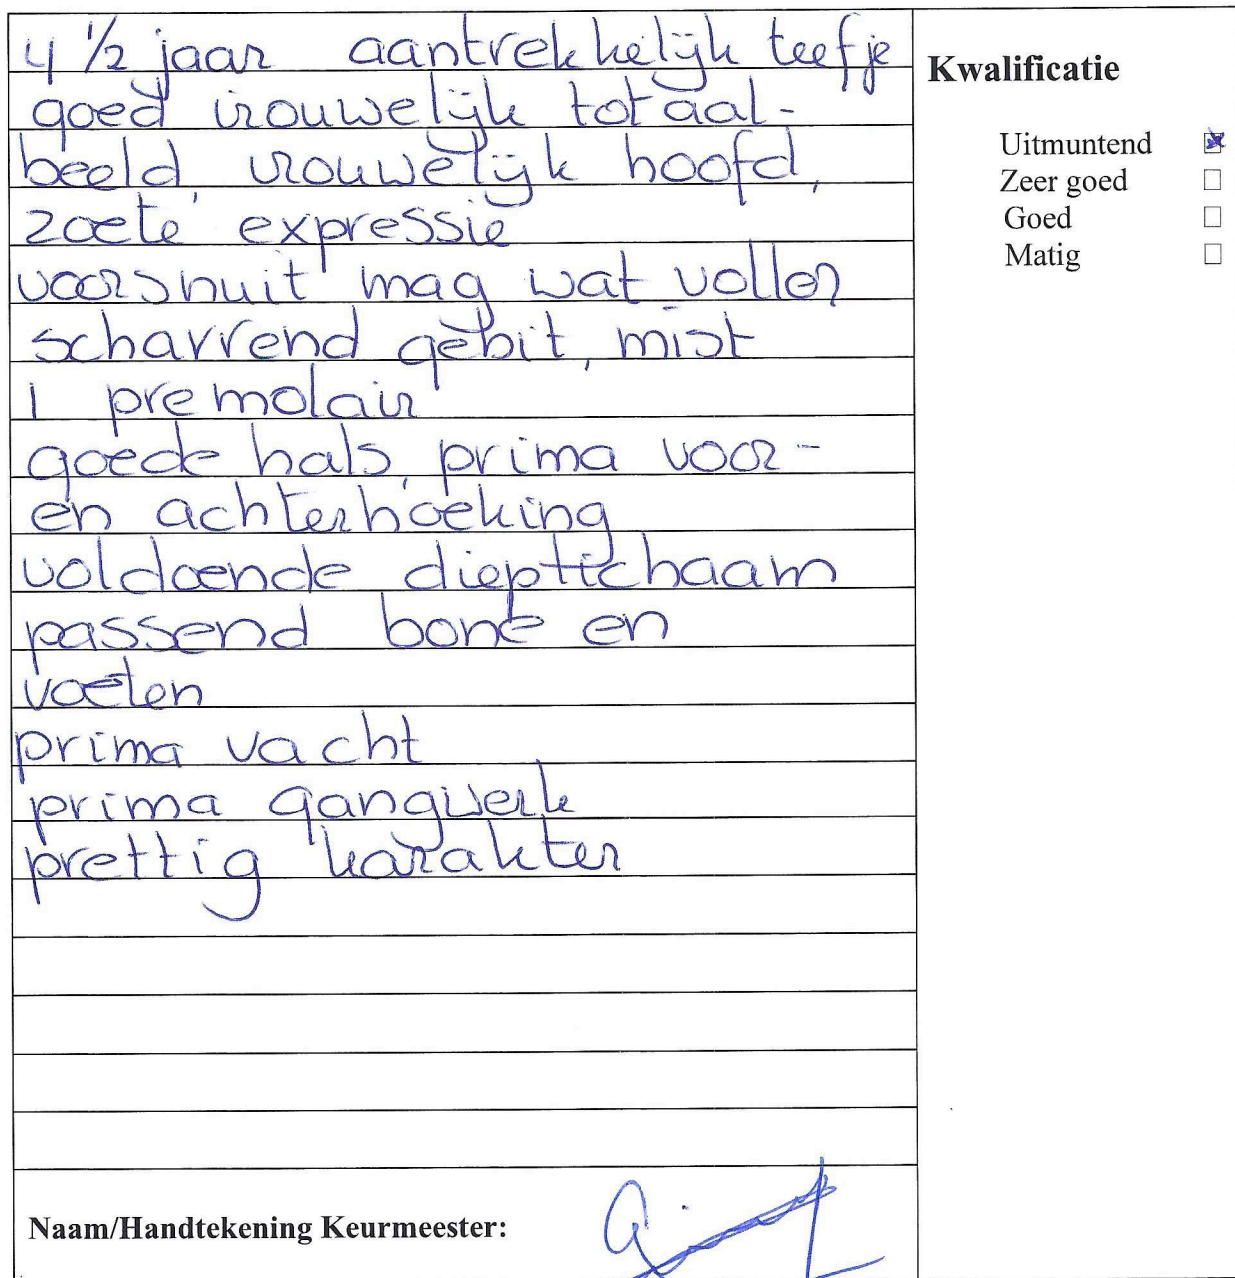 4 1/2 jaar aantrekkelijk teefje
goed vrouwelijk totaal-
beeld, vrouwelijk hoofd,
zoete expressie
voorsnuit mag wat voller
scharrend gebit, mist
1 premolair
goede hals, prima voor-
en achterhoeking
voldoende diep lichaam
passend bone en
voeten
prima vacht
prima gangwerk
prettig karakter
Naam/Handtekening Keurmeester:
Kwalificatie
Uitmuntend
Zeer goed
Goed
Matig